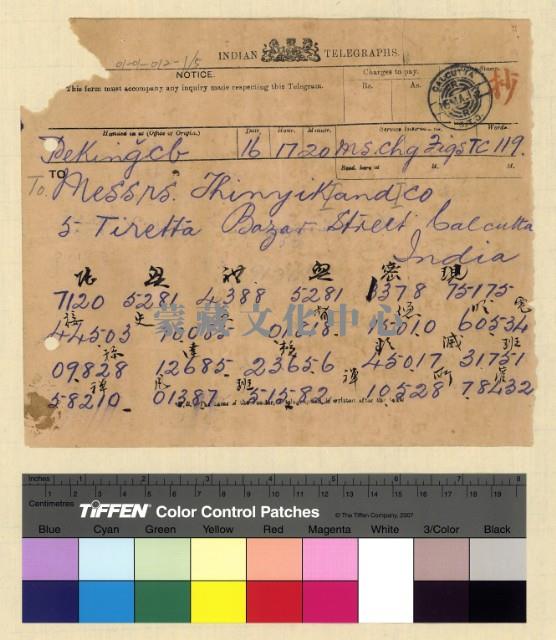 0101-012-1/5
INDIAN TELEGRAPHS.
NOTICE.
This form must accompany any inquiry made respecting this Telegram.
Charges to pay.
Rs. As.
CALCUTTA
抄
Handed in at (Office of Origin).
Date. Hour. Minute.
Service Instructions.
Words.
Peking cb 16 17 20 Ms. chg Figs TC 119.
TO
Recd. here at H. M.
To. Messrs. Thinyik and Co
5. Tiretta Bazar Street Calcutta
India
密 現
7120 5281 4388 5281 1378 75175
44503
60534
班
09828 12685 23656 45017 31751
班
58210 01387 51582 10528 78432
蒙藏文化中心
Inches 1 2 3 4 5 6 7 8
Centimetres
TIFFEN Color Control Patches
© The Tiffen Company, 2007
Blue Cyan Green Yellow Red Magenta White 3/Color Black